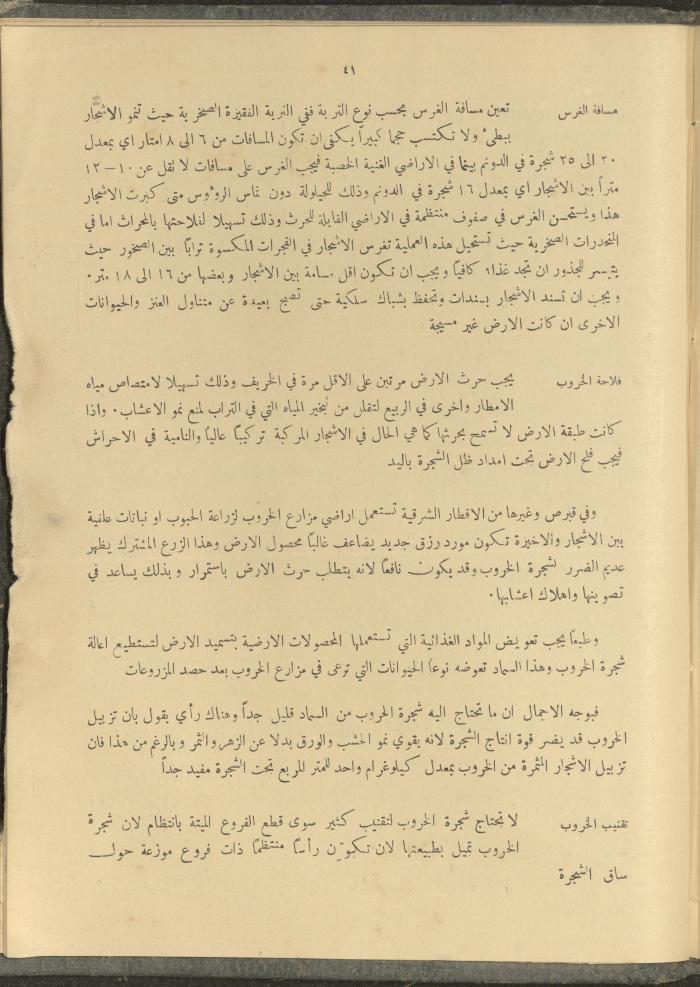 ٤١
مسافة الغرس تعين مسافة الغرس بحسب نوع التربة ففي التربة الفقيرة الصخرية حيث تنمو الاشجار
ببطئ ولا تكتسب حجما كبيراً يكفي ان تكون المسافات من ٦ الى ٨ امتار اي بمعدل
٢٠ الى ٢٥ شجرة في الدونم بينما في الاراضي الغنية الخصبة فيجب الغرس على مسافات لا تقل عن ١٠ – ١٢
متراً بين الاشجار اي بمعدل ١٦ شجرة في الدونم وذلك للحيلولة دون تماس الرؤوس متى كبرت الاشجار
هذا ويستحسن الغرس في صفوف منتظمة في الاراضي القابلة للحرث وذلك تسهيلا لفلاحتها بالمحراث اما في
المنحدرات الصخرية حيث تستحيل هذه العملية تغرس الاشجار في الفجرات المكسوة تراباً بين الصخور حيث
يتيسر للجذور ان تجد غذاء كافياً ويجب ان تكون اقل مسافة بين الاشجار وبعضها من ١٦ الى ١٨ متر٠
ويجب ان تسند الاشجار بسندات وتحفظ بشباك سلكية حتى تصبح بعيدة عن متناول العنز والحيوانات
الاخرى ان كانت الارض غير مسيجة
فلاحة الخروب يجب حرث الارض مرتين على الاقل مرة في الخريف وذلك تسهيلا لامتصاص مياه
الامطار واخرى في الربيع لتقلل من تبخير المياه التي في التراب لمنع نمو الاعشاب٠ واذا
كانت طبقة الارض لا تسمح بحرثها كما هي الحال في الاشجار المركبة تركيباً عالياً والنامية في الاحراش
فيجب فلح الارض تحت امداد ظل الشجرة باليد
وفي قبرص وغيرها من الاقطار الشرقية تستعمل اراضي مزارع الخروب لزراعة الحبوب او نباتات علفية
بين الاشجار والاخيرة تكون مورد رزق جديد يضاعف غالباً محصول الارض وهذا الزرع المشترك يظهر
عديم الضرر لشجرة الخروب وقد يكون نافعاً لانه يتطلب حرث الارض باستمرار وبذلك يساعد في
تصوينها واهلاك اعشابها٠
وطبعاً يجب تعويض المواد الغذائية التي تستعملها المحصولات الارضية بتسميد الارض لتستطيع اعالة
شجرة الخروب وهذا السماد تعوضه نوعاً الحيوانات التي ترعى في مزارع الخروب بعد حصد المزروعات
فبوجه الاجمال ان ما تحتاج اليه شجرة الخروب من السماد قليل جداً وهناك رأي يقول بان تزبيل
الخروب قد يضر قوة انتاج الشجرة لانه يقوي نمو الخشب والورق بدلا عن الزهر والثمر وبالرغم من هذا فان
تزبيل الاشجار المثمرة من الخروب بمعدل كيلوغرام واحد للمتر المربع تحت الشجرة مفيد جداً
تقنيب الخروب لا تحتاج شجرة الخروب لتقنيب كثير سوى قطع الفروع الميتة بانتظام لان شجرة
الخروب تميل بطبيعتها لان تكوّن رأساً منتظماً ذات فروع موزعة حول
ساق الشجرة